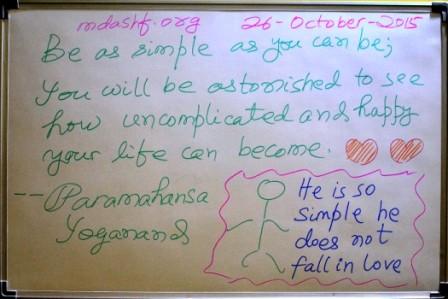 mdashf.org 26-October-2015
Be as simple as you can be;
You will be astonished to see
how uncomplicated and happy
your life can become.
-- Paramahansa
Yogananda
He is so
simple he
does not
fall in love